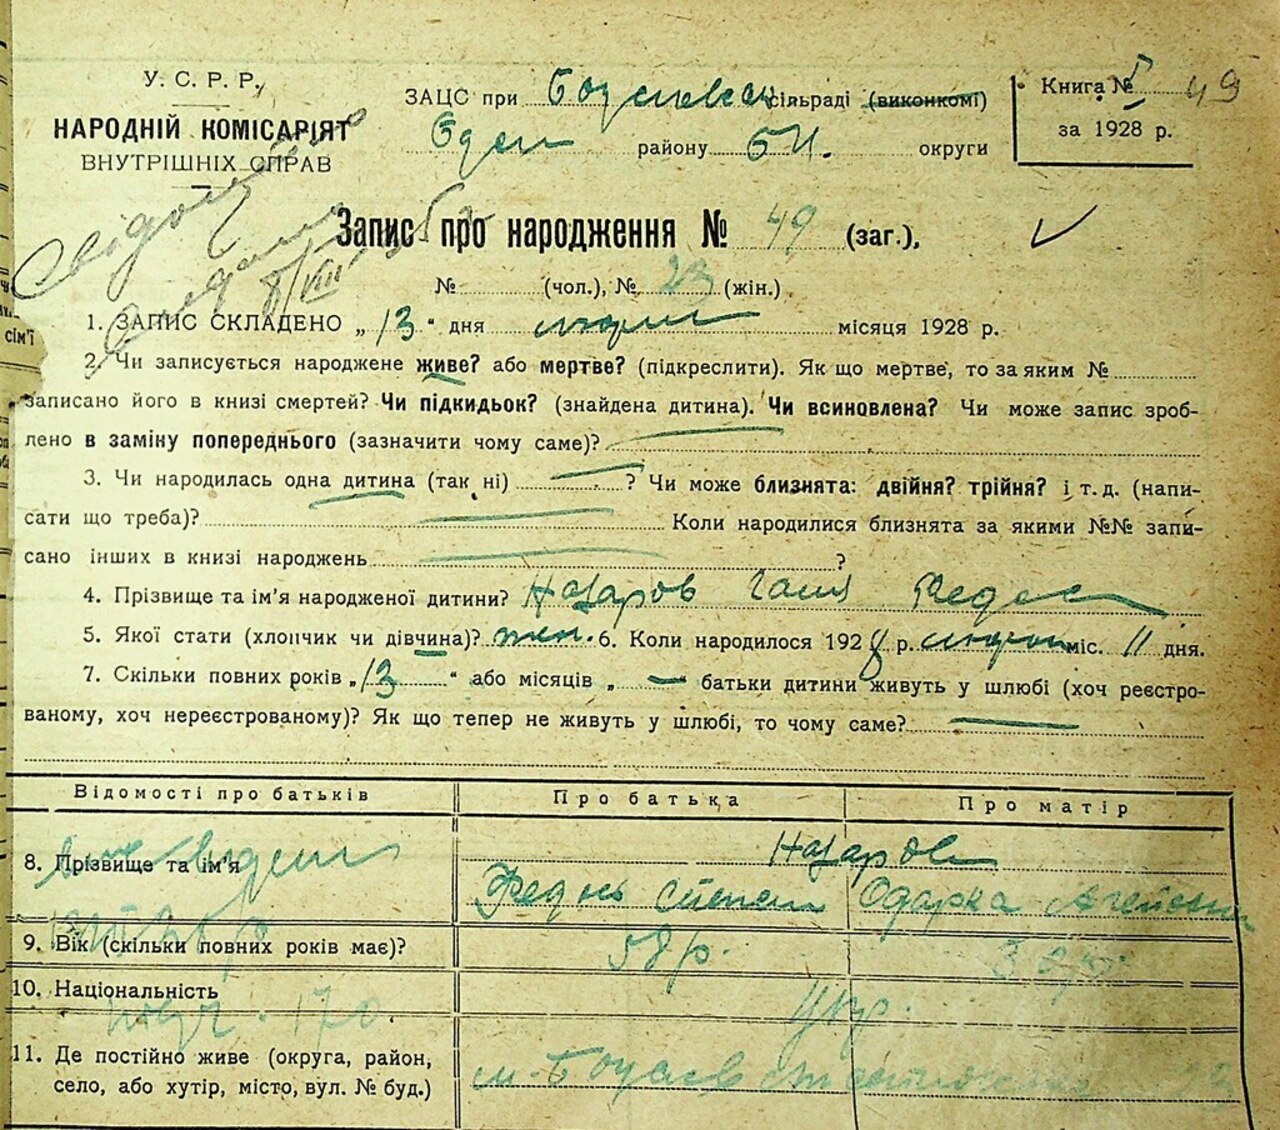 У. С. Р. Р.
НАРОДНІЙ КОМІСАРІЯТ
ВНУТРІШНІХ СПРАВ
ЗАЦС при сільраді (виконкомі)
району БЦ. округи
Книга № 49
за 1928 р.
Запис про народження № 49 (заг.),
№ (чол.), № 23 (жін.)
1. ЗАПИС СКЛАДЕНО „ 13 " дня місяця 1928 р.
2. Чи записується народжене живе? або мертве? (підкреслити). Як що мертве, то за яким №
записано його в книзі смертей? Чи підкидьок? (знайдена дитина). Чи всиновлена? Чи може запис зроб-
лено в заміну попереднього (зазначити чому саме)?
3. Чи народилась одна дитина (так ні) ? Чи може близнята: двійня? трійня? і т. д. (напи-
сати що треба)? Коли народилися близнята за якими №№ запи-
сано інших в книзі народжень ?
4. Прізвище та ім'я народженої дитини? Назаров Галя Федос
5. Якої стати (хлопчик чи дівчина)? жін. 6. Коли народилось 1928 р. міс. 11 дня.
7. Скільки повних років „ 13 " або місяців „ — " батьки дитини живуть у шлюбі (хоч реєстро-
ваному, хоч нереєстрованому)? Як що тепер не живуть у шлюбі, то чому саме?
Відомості про батьків Про батька Про матір
8. Прізвище та ім'я Назарови
Федось Степан Одарка
9. Вік (скільки повних років має)? 58 р.
10. Національність Укр.
11. Де постійно живе (округа, район,
село, або хутір, місто, вул. № буд.) м. Богуслав